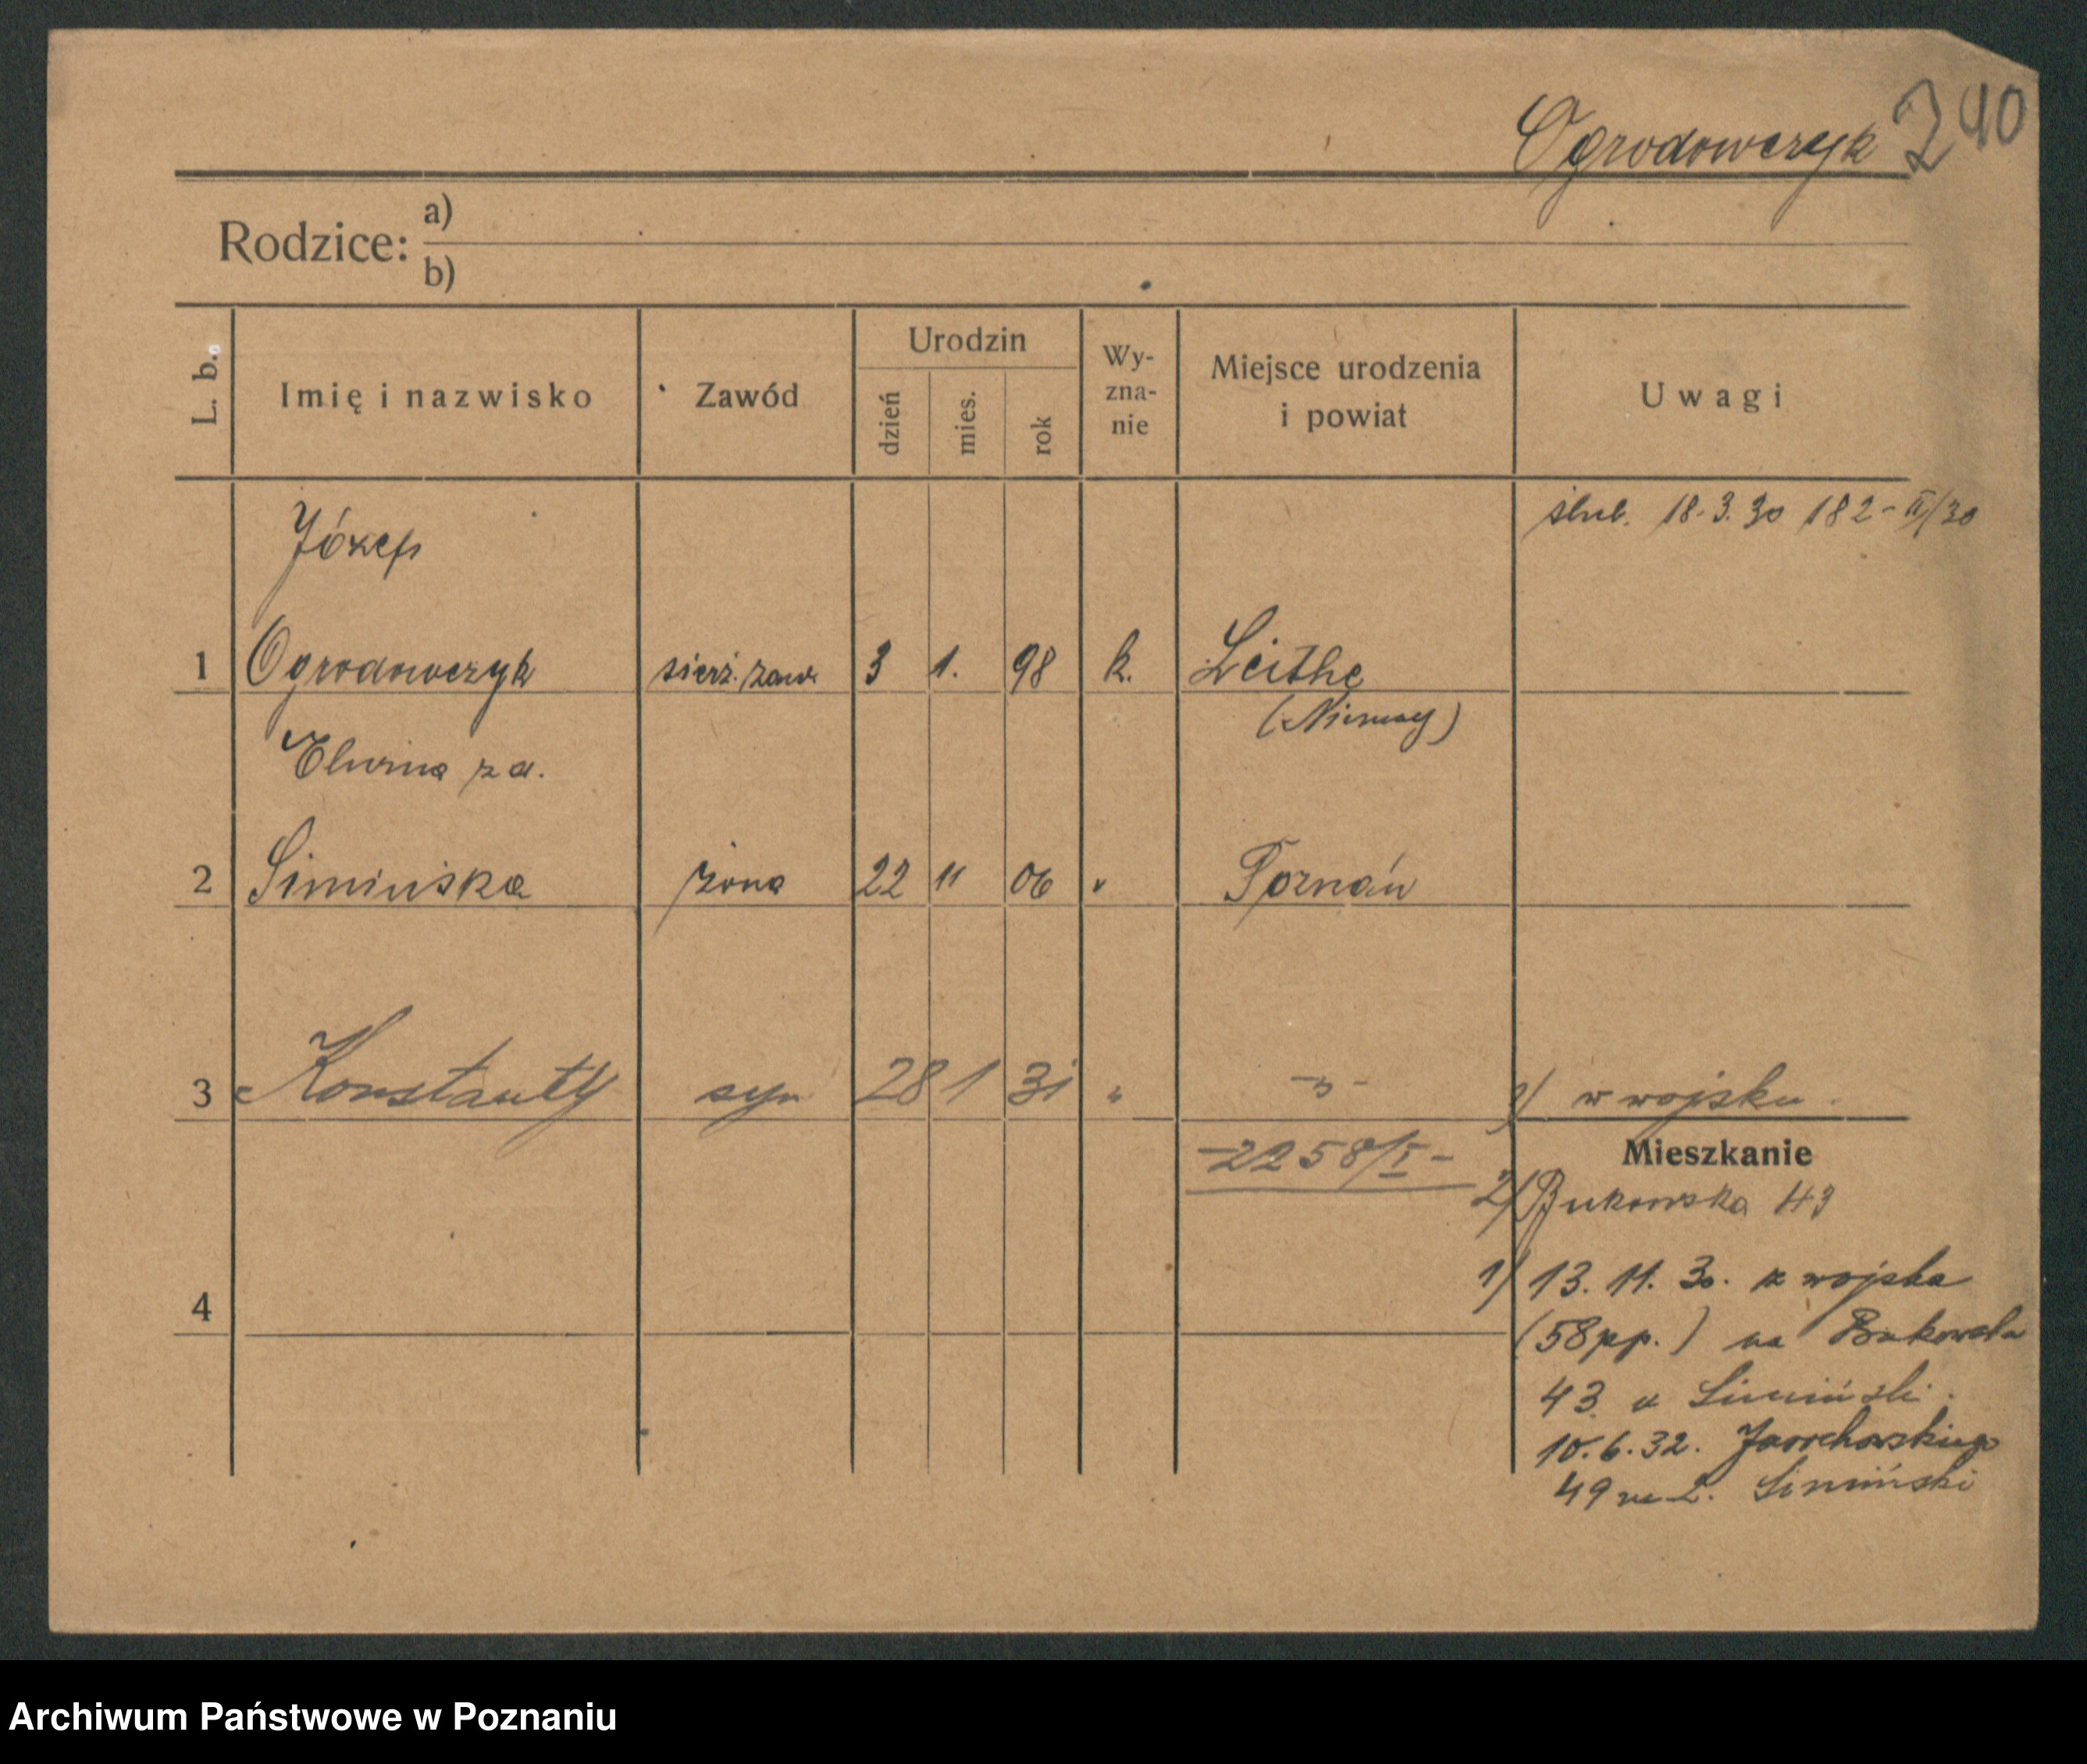 Ogrodowczyk 240
Rodzice: a)
b)
L. b. Imię i nazwisko Zawód Urodzin dzień mies. rok Wy-zna-nie Miejsce urodzenia i powiat Uwagi
ślub. 18.3.30 182-II/30
Józef
1 Ogrodowczyk sierż. zaw. 3 1. 98 k. Leithe
(Niemcy)
Elwira z d.
2 Simińska żona 22 11 06 " Poznań
3 Konstanty syn 28 1 31 " -"- 3) w wojsku
-2258/I- Mieszkanie
2) Bukowska 43
1) 13.11.30. z wojska
4 (58pp.) na Bukowska
43 u Simiński.
10.6.32. Jarochowskiego
49 m 2. Simiński
Archiwum Państwowe w Poznaniu